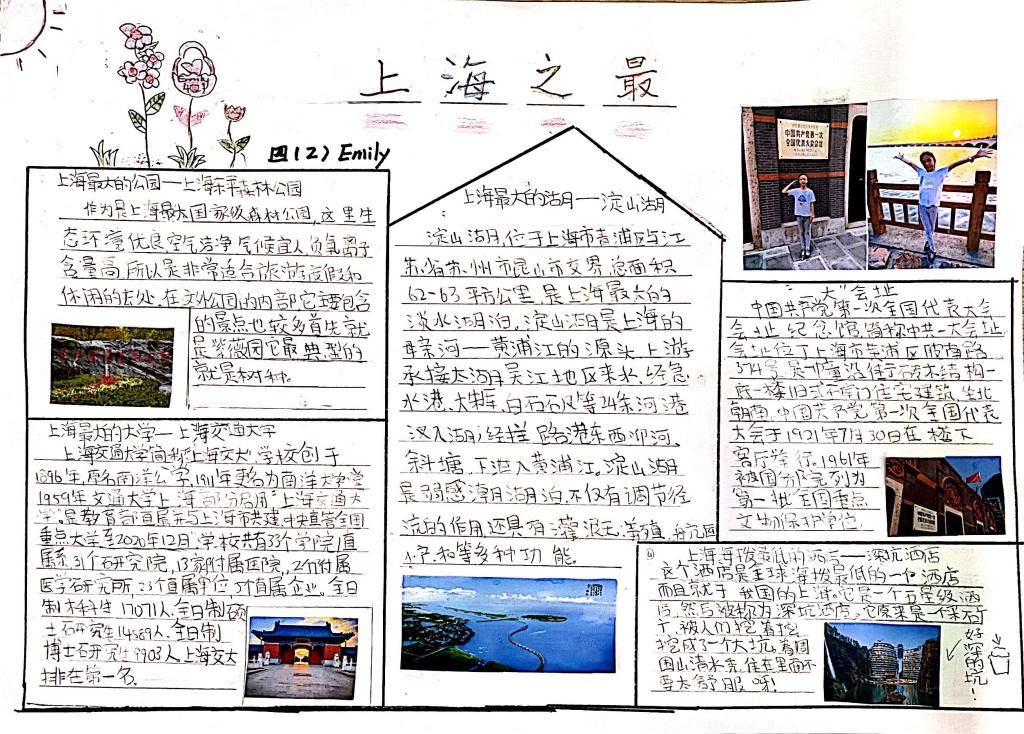 上海之最
四(2) Emily
上海最大的公园——上海东平森林公园
作为是上海最大国家级森林公园,这里生
态环境优良空气洁净气候宜人负氧离子
含量高,所以是非常适合旅游度假和
休闲的去处,在这公园的内部它主要包含
的景点也较多首先就
是紫薇园它最典型的
就是树种。
上海最大的大学——上海交通大学
上海交通大学简称"上海交大"学校创于
1896年,原名南洋公学,1911年更名为南洋大学堂
1959年交通大学上海部分启用"上海交通大
学"。是教育部直属并与上海市共建,中央直管全国
重点大学至2020年12月,学校共有33个学院/直
属系31个研究院,13家附属医院,2个附属
医学研究所,23个直属单位5个直属企业。全日
制本科生17071人、全日制硕
士研究生14589人、全日制
博士研究生9903人上海交大
排在第一名。
上海最大的湖——淀山湖
淀山湖,位于上海市青浦区与江
苏省苏州市昆山市交界,总面积
62-63平方公里,是上海最大的
淡水湖泊。淀山湖是上海的
母亲河——黄浦江的源头,上游
承接太湖吴江地区来水,经急
水港、大朱厍、白石矶等24条河港
汊入湖,经拦路港东西泖河、
斜塘,下泄入黄浦江。淀山湖
是弱感潮湖泊,不仅有调节径
流的作用,还具有灌溉、养殖、舟航
等多种功能。
中国共产党第一次
全国代表大会会址
"一大"会址
中国共产党第一次全国代表大会
会址纪念馆,简称中共一大会址
会址位于上海市黄浦区黄陂南路
374号,是一幢沿街砖木结构一
底一楼旧式石库门住宅建筑,坐北
朝南,中国共产党第一次全国代表
大会于1921年7月30日在楼下
客厅举行。1961年
被国务院列为
第一批全国重点
文物保护单位。
上海海拔最低的酒店——深坑酒店
这个酒店是全球海拔最低的一个酒店
而且就于我国的上海。它是一个五星级酒
店,然后被称为深坑酒店。它原来是一个采石
厂,被人们挖着挖
挖成了一个大坑。着周
围山清水秀,住在里面不
要太舒服呀!
好深的坑!